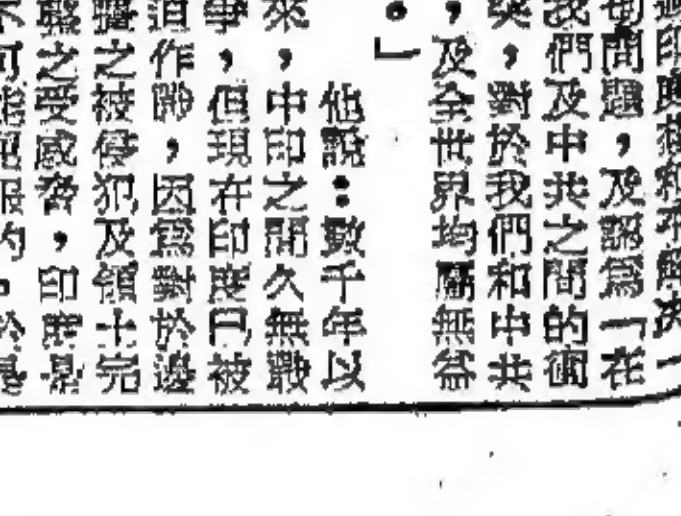 印度想和平解决一
切問題，及認爲「在
我們及中共之間的衝
突，對於我們和中共
，及全世界均屬無益
。」
他說：數千年以
來，中印之間久無戰
爭，但現在印度已被
迫作戰，因爲對於邊
疆之被侵犯及領土完
整之受威脅，印度是
不可能屈服的。於是